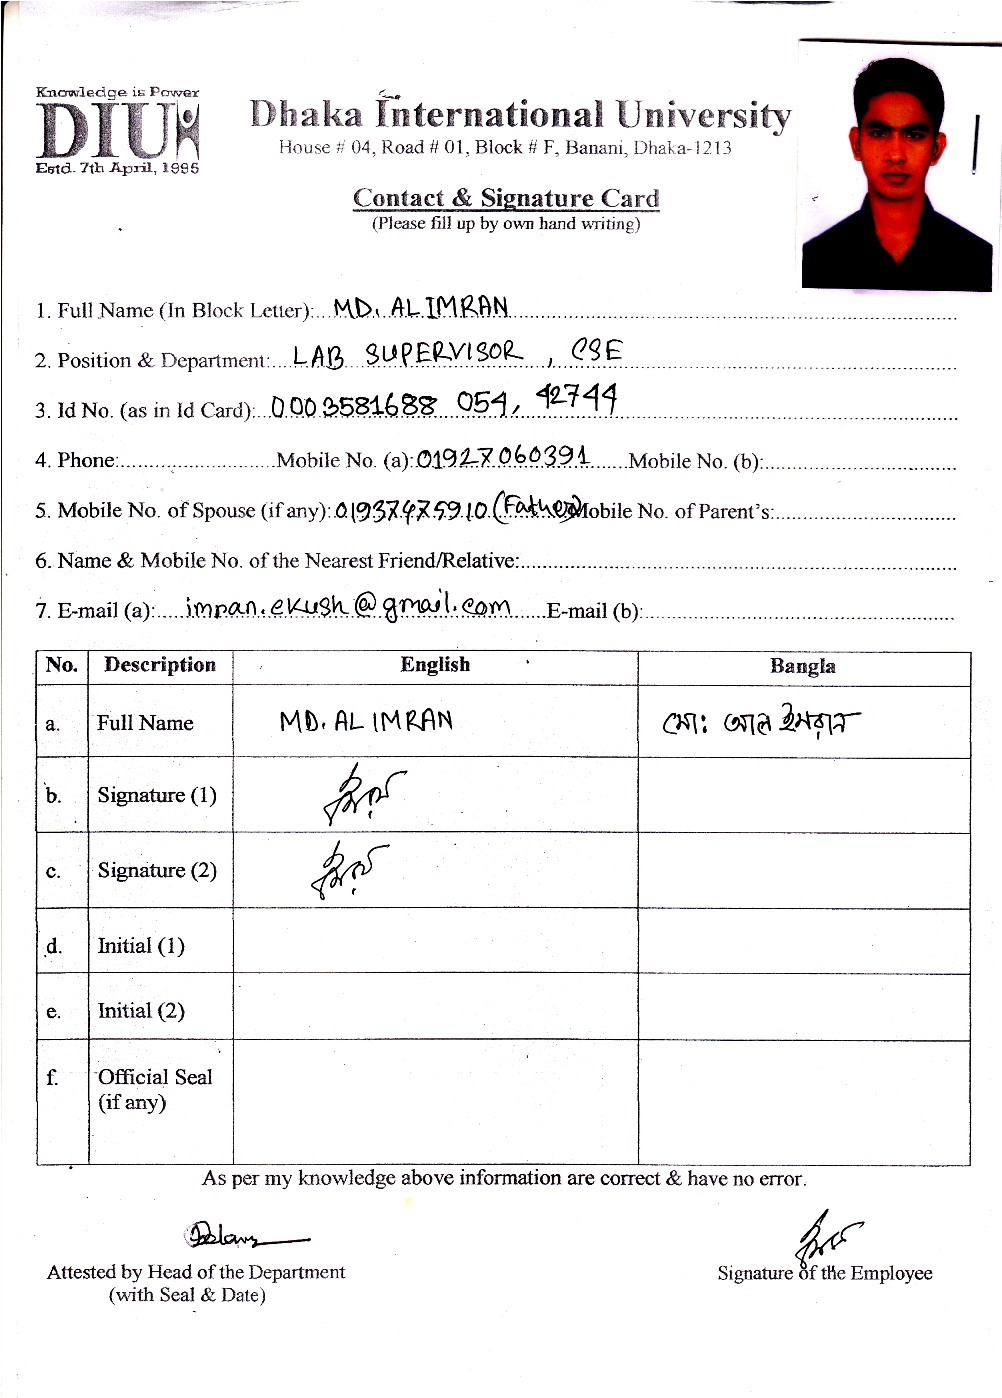 Knowledge is Power
DIU
Estd. 7th April, 1995
Dhaka International University
House # 04, Road # 01, Block # F, Banani, Dhaka-1213
Contact & Signature Card
(Please fill up by own hand writing)
1. Full Name (In Block Letter):...MD. AL IMRAN
2. Position & Department:...LAB SUPERVISOR, CSE
3. Id No. (as in Id Card):..0003581688 054, 42744
4. Phone:..........Mobile No. (a):01927060391......Mobile No. (b):..........
5. Mobile No. of Spouse (if any): 01937475910 (Father) Mobile No. of Parent's:..........
6. Name & Mobile No. of the Nearest Friend/Relative:..........
7. E-mail (a):.....imran.ekush@gmail.com......E-mail (b):..........
No. Description English Bangla
a. Full Name MD. AL IMRAN মো: আল ইমরান
b. Signature (1)
c. Signature (2)
d. Initial (1)
e. Initial (2)
f. Official Seal
(if any)
As per my knowledge above information are correct & have no error.
Attested by Head of the Department
(with Seal & Date)
Signature of the Employee